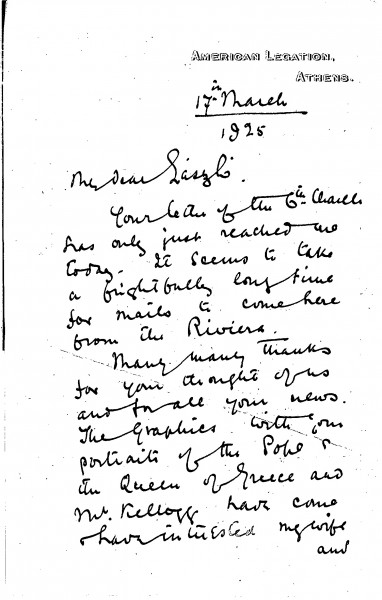 American Legation,
Athens.
17th March
1925
My dear László.
Your letter of the 6th March
has only just reached me
today. It seems to take
a frightfully long time
for mails to come here
from the Riviera.
Many many thanks
for your thought of us
and for all your news.
The Graphics with your
portraits of the Pope &
the Queen of Greece and
Mr. Kellogg have come
& have interested my wife
and